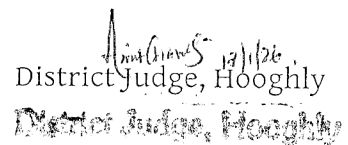 12/1/26
District Judge, Hooghly
District Judge, Hooghly